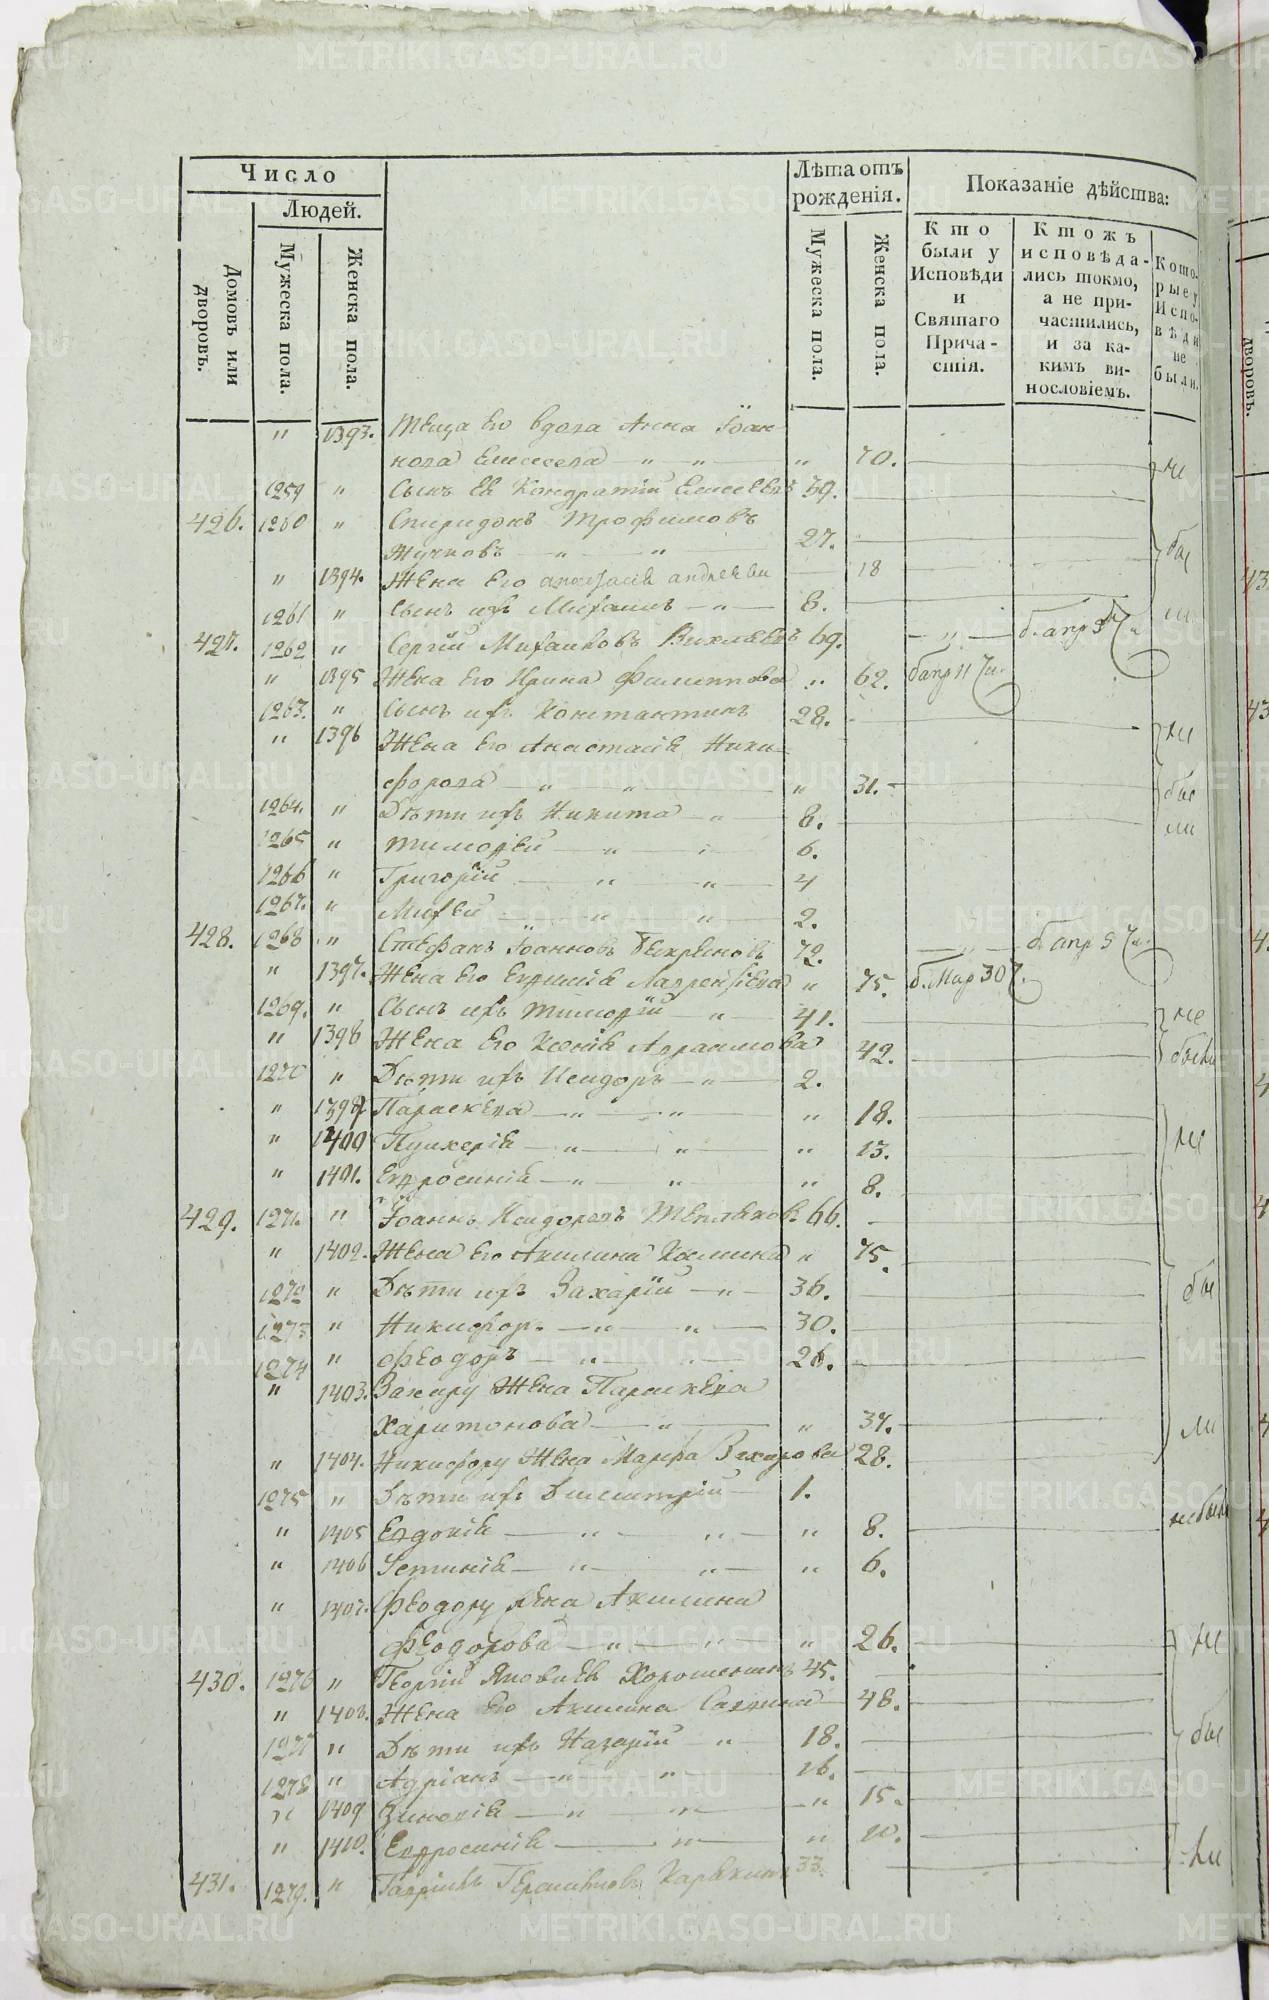 Число
Людей.
Домовъ или дворовъ.
Мужеска пола.
Женска пола.
Лѣта отъ рожденія.
Мужеска пола.
Женска пола.
Показаніе дѣйства:
Кто были у Исповѣди и Святаго Прича-стія.
Ктожъ исповѣда-лись токмо, а не при-частились, и за ка-кимъ ви-нословіемъ.
Кото-рые у Испо-вѣди не были.
" 1393. Теща Его вдова Анна Іоан
нова Елисеева " " " 70. не
1259 " Сынъ Ея Кондратій Елисеевъ 39.
426. 1260 " Спиридонъ Трофимовъ
Жучковъ " " 27. бы
" 1394. Жена Его Анастасія андреева 18
1261 " Сынъ ихъ Михаилъ " 8. ли
427. 1262 " Сергій Михаиловъ 69. " б. апр 5 ч.
" 1395 Жена Его Ирина Филиппова " 62. б апр 11 ч.
1263. " Сынъ ихъ Константинъ 28.
" 1396 Жена Его Анастасія Ники- не
форова " " " 31. бы
1264. " Дѣти ихъ Никита " 8. ли
1265 " Тимофей " 6.
1266 " Григорій " " 4
1267. " Михей " " 2.
428. 1268 " Стефанъ Іоанновъ 72. " б. апр 5 ч.
" 1397. Жена Его Евдокія Лаврентіева " 75. б. Мар 30 ч.
1269. " Сынъ ихъ Тимофій " 41. не
" 1398 Жена Его Ксенія Авраамова 42. были
1270 " Дѣти ихъ Исидоръ " 2.
" 1399 Параскева " " " 18.
" 1400 Пулхерія " " " 13. не
" 1401. Евфросинія " " " 8.
429. 1271. " Іоаннъ Исидоровъ Тепляков. 66.
" 1402. Жена Его Акилина " 75.
1272 " Дѣти ихъ Захарій " 36. бы
1273 " Никифор. " " 30.
1274 " Феодоръ " " 26.
" 1403. Захару Жена Параскева
Харитонова " " 37. ли
" 1404. Никифору Жена Марфа Захарова 28.
1275 " Дѣти ихъ Димитрій 1.
" 1405 Евдокія " " " 8. не были
" 1406 Устинія " " " 6.
" 1407. Феодору жена Акилина
Феодорова " " " 26. не
430. 1276 " Георгій Яковлевъ 45.
" 1408. Жена Его Акилина Саввина 48.
1277 " Дѣти ихъ Назарій " 18. бы
1278 " Адріанъ " " 16.
" 1409 Зиновія " " " 15.
" 1410. Евфросинія " " 10. ли
431. 1279. " Гавріилъ 33.
METRIKI.GASO-URAL.RU